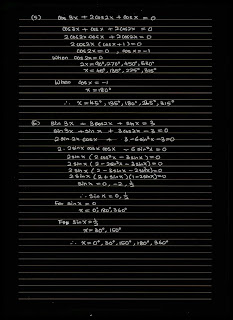 (5) cos 3x + 2cos2x + cosx = 0
cos3x + cosx + 2cos2x = 0
2cos2x cosx + 2cos2x = 0
2cos2x (cosx+1) = 0
cos2x = 0, cosx = -1
When cos2x = 0
2x = 90°, 270°, 450°, 630°
x = 45°, 135°, 225°, 315°
When cosx = -1
x = 180°
∴ x = 45°, 135°, 180°, 225°, 315°
sin 3x + 3cos2x + sinx = 3
sin 3x + sinx + 3cos2x - 3 = 0
2sin2x cosx + 3 - 6sin²x - 3 = 0
2. 2sinx cosx cosx - 6sin²x = 0
2sinx (2cos²x - 3sinx) = 0
2sinx (2 - 2sin²x - 3sinx) = 0
2sinx (2 - 3sinx - 2sin²x) = 0
2sinx (2 + sinx)(1 - 2sinx) = 0
sinx = 0, -2, ½
∴ sinx = 0, ½
For sinx = 0
x = 0°, 180°, 360°
For sinx = ½
x = 30°, 150°
∴ x = 0°, 30°, 150°, 180°, 360°